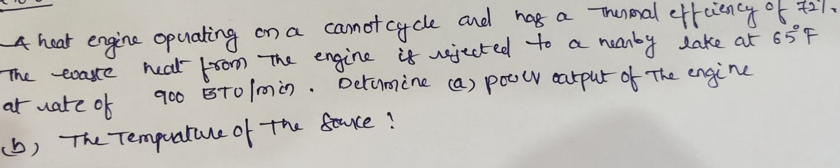 A heat engine opuating on a carnot cycle and has a Thermal effciency of 72%.
The waste heat from The engine is rejected to a nearby lake at 65°F
at rate of 900 BTU/min. Determine (a) power output of The engine
(b) The Temperature of The Source ?